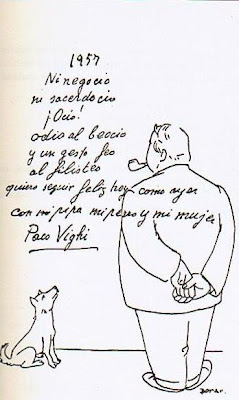 1957
Ni negocio
ni sacerdocio
¡Ocio!
odio al beocio
y un gesto feo
al filisteo
quiero seguir feliz hoy como ayer
con mi pipa mi perro y mi mujer
Paco Vighi